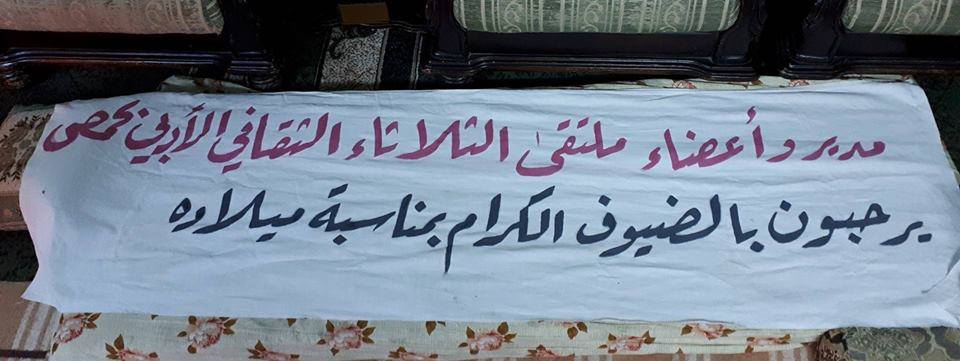 مدير وأعضاء ملتقى الثلاثاء الثقافي الأدبي بحمص
يرحبون بالضيوف الكرام بمناسبة ميلاده